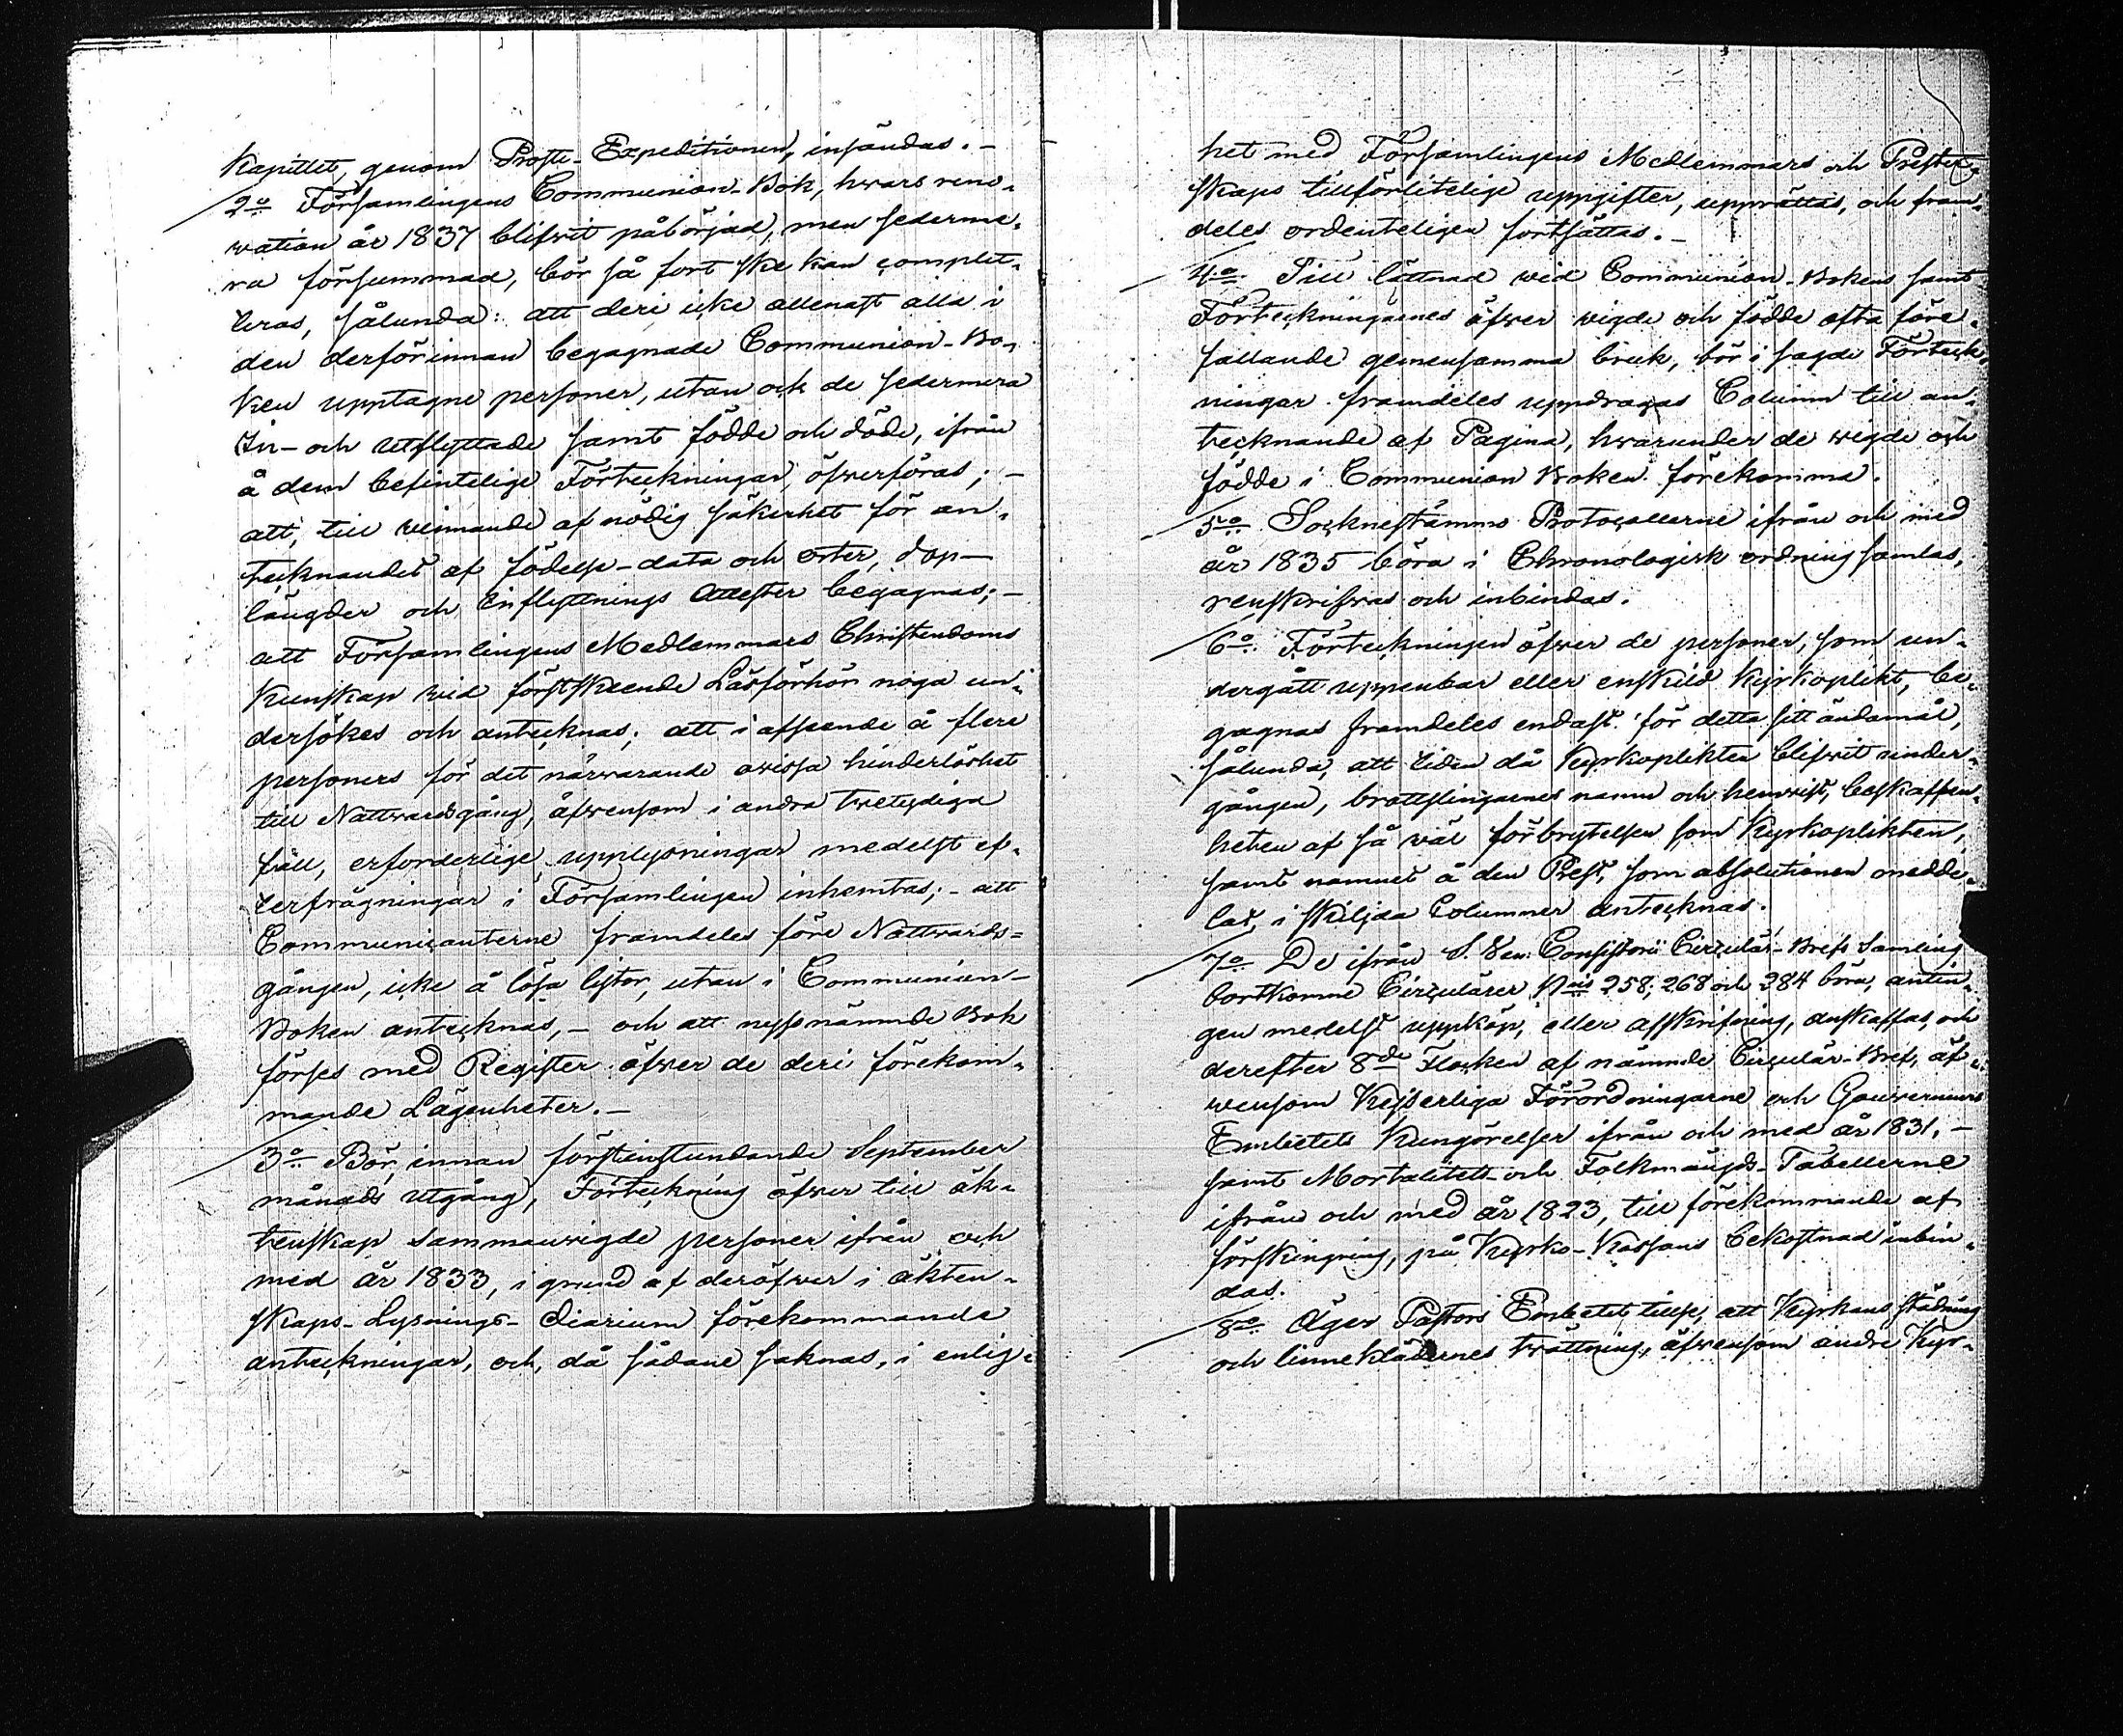 Kapitlet, genom Prosti-Expeditionen, insändas. –
2:o Församlingens Communion-Bok, hwars reno-
wation år 1837 blifwit påbörjad, men sederme-
ra försummad, bör så fort ske kan complet-
teras, sålunda: att deri icke allenast alla i
den derförinnan begagnade Communion-Bo-
ken upptagne personer, utan ock de sedermera
In- och utflyttade samt födde och döde, ifrån
å dem befintelige Förteckningar, öfwerföras; –
att, till winnande af nödig säkerhet för an-
tecknandet af födelse-data och orter, dop-
längder och Inflyttnings Attester begagnas; –
att Församlingens Medlemmars Christendoms
Kunskap wid förstskeende Läsförhör noga un-
dersökes och antecknas; att i afseende å flere
personers för det närwarande owissa hinderlöshet
till Nattwardsgång, äfwensom i andra twetydiga
fall, erforderlige upplysningar medelst ef-
terfrågningar i Församlingen inhemtas; – att
Communicanterne framdeles före Nattwards-
gången, icke å lösa listor, utan i Communion-
Boken antecknas, – och att nyssnämnde Bok
förses med Register öfwer de deri förekom-
mande Lägenheter. –
3:o Bör, innan förstinstundande September
månads utgång, Förteckning öfwer till äk-
tenskap sammanwigde personer ifrån och
med år 1833, i grund af deröfwer i äkten-
skaps-Lysnings-Diarium förekommande
anteckningar, och, då sådane saknas, i enlig-
het med Församlingens Medlemmars och Prester-
skaps tillförlitelige uppgifter, upprättas, och fram-
deles ordenteligen fortsättas. –
4:o Till lättnad wid Communion-Bokens samt
Förteckningarnes öfwer wigde och födde ofta före-
fallande gemensamma bruk, bör i sagde Förteck-
ningar framdeles uppdragas Column till an-
tecknande af Pagina, hwarunder de wigde och
födde i Communion Boken förekomma.
5:o Sockneståmms Protocollerne ifrån och med
år 1835 böra i Chronologisk ordning samlas,
renskrifwas och inbindas.
6:o Förteckningen öfwer de personer, som un-
dergått uppenbar eller enskild Kyrkoplikt, be-
gagnas framdeles endast för detta sitt ändamål,
sålunda, att tiden då Kyrkoplikten blifwit under-
gången, brottslingarnes namn och hemwist, beskaffen-
heten af så wäl förbrytelsen som Kyrkoplikten,
samt namnet å den Prest, som absolutionen medde-
lat, i skiljda Columner antecknas.
7:o De ifrån S. Ven. Consistorii Circulär-Brefs Samling
bortkomne Circulärer N:ris 258, 268 och 284 böra, antin-
gen medelst uppköp, eller afskrifning, anskaffas, och
derefter 8:de Flocken af nämnde Circulär-Bref, äf-
wensom Kejserliga Förordningarne och Gouvernements
Embetets Kungörelser ifrån och med år 1831, –
samt Mortalitets- och Folkmängds-Tabellerne
ifrån och med år 1823, till förekommande af
förskingring, på Kyrko-Kassans bekostnad inbin-
das.
8:o Äger Pastors Embetet tillse, att Kyrkans städning
och linneklädernes twättning, äfwensom andre Kyr-